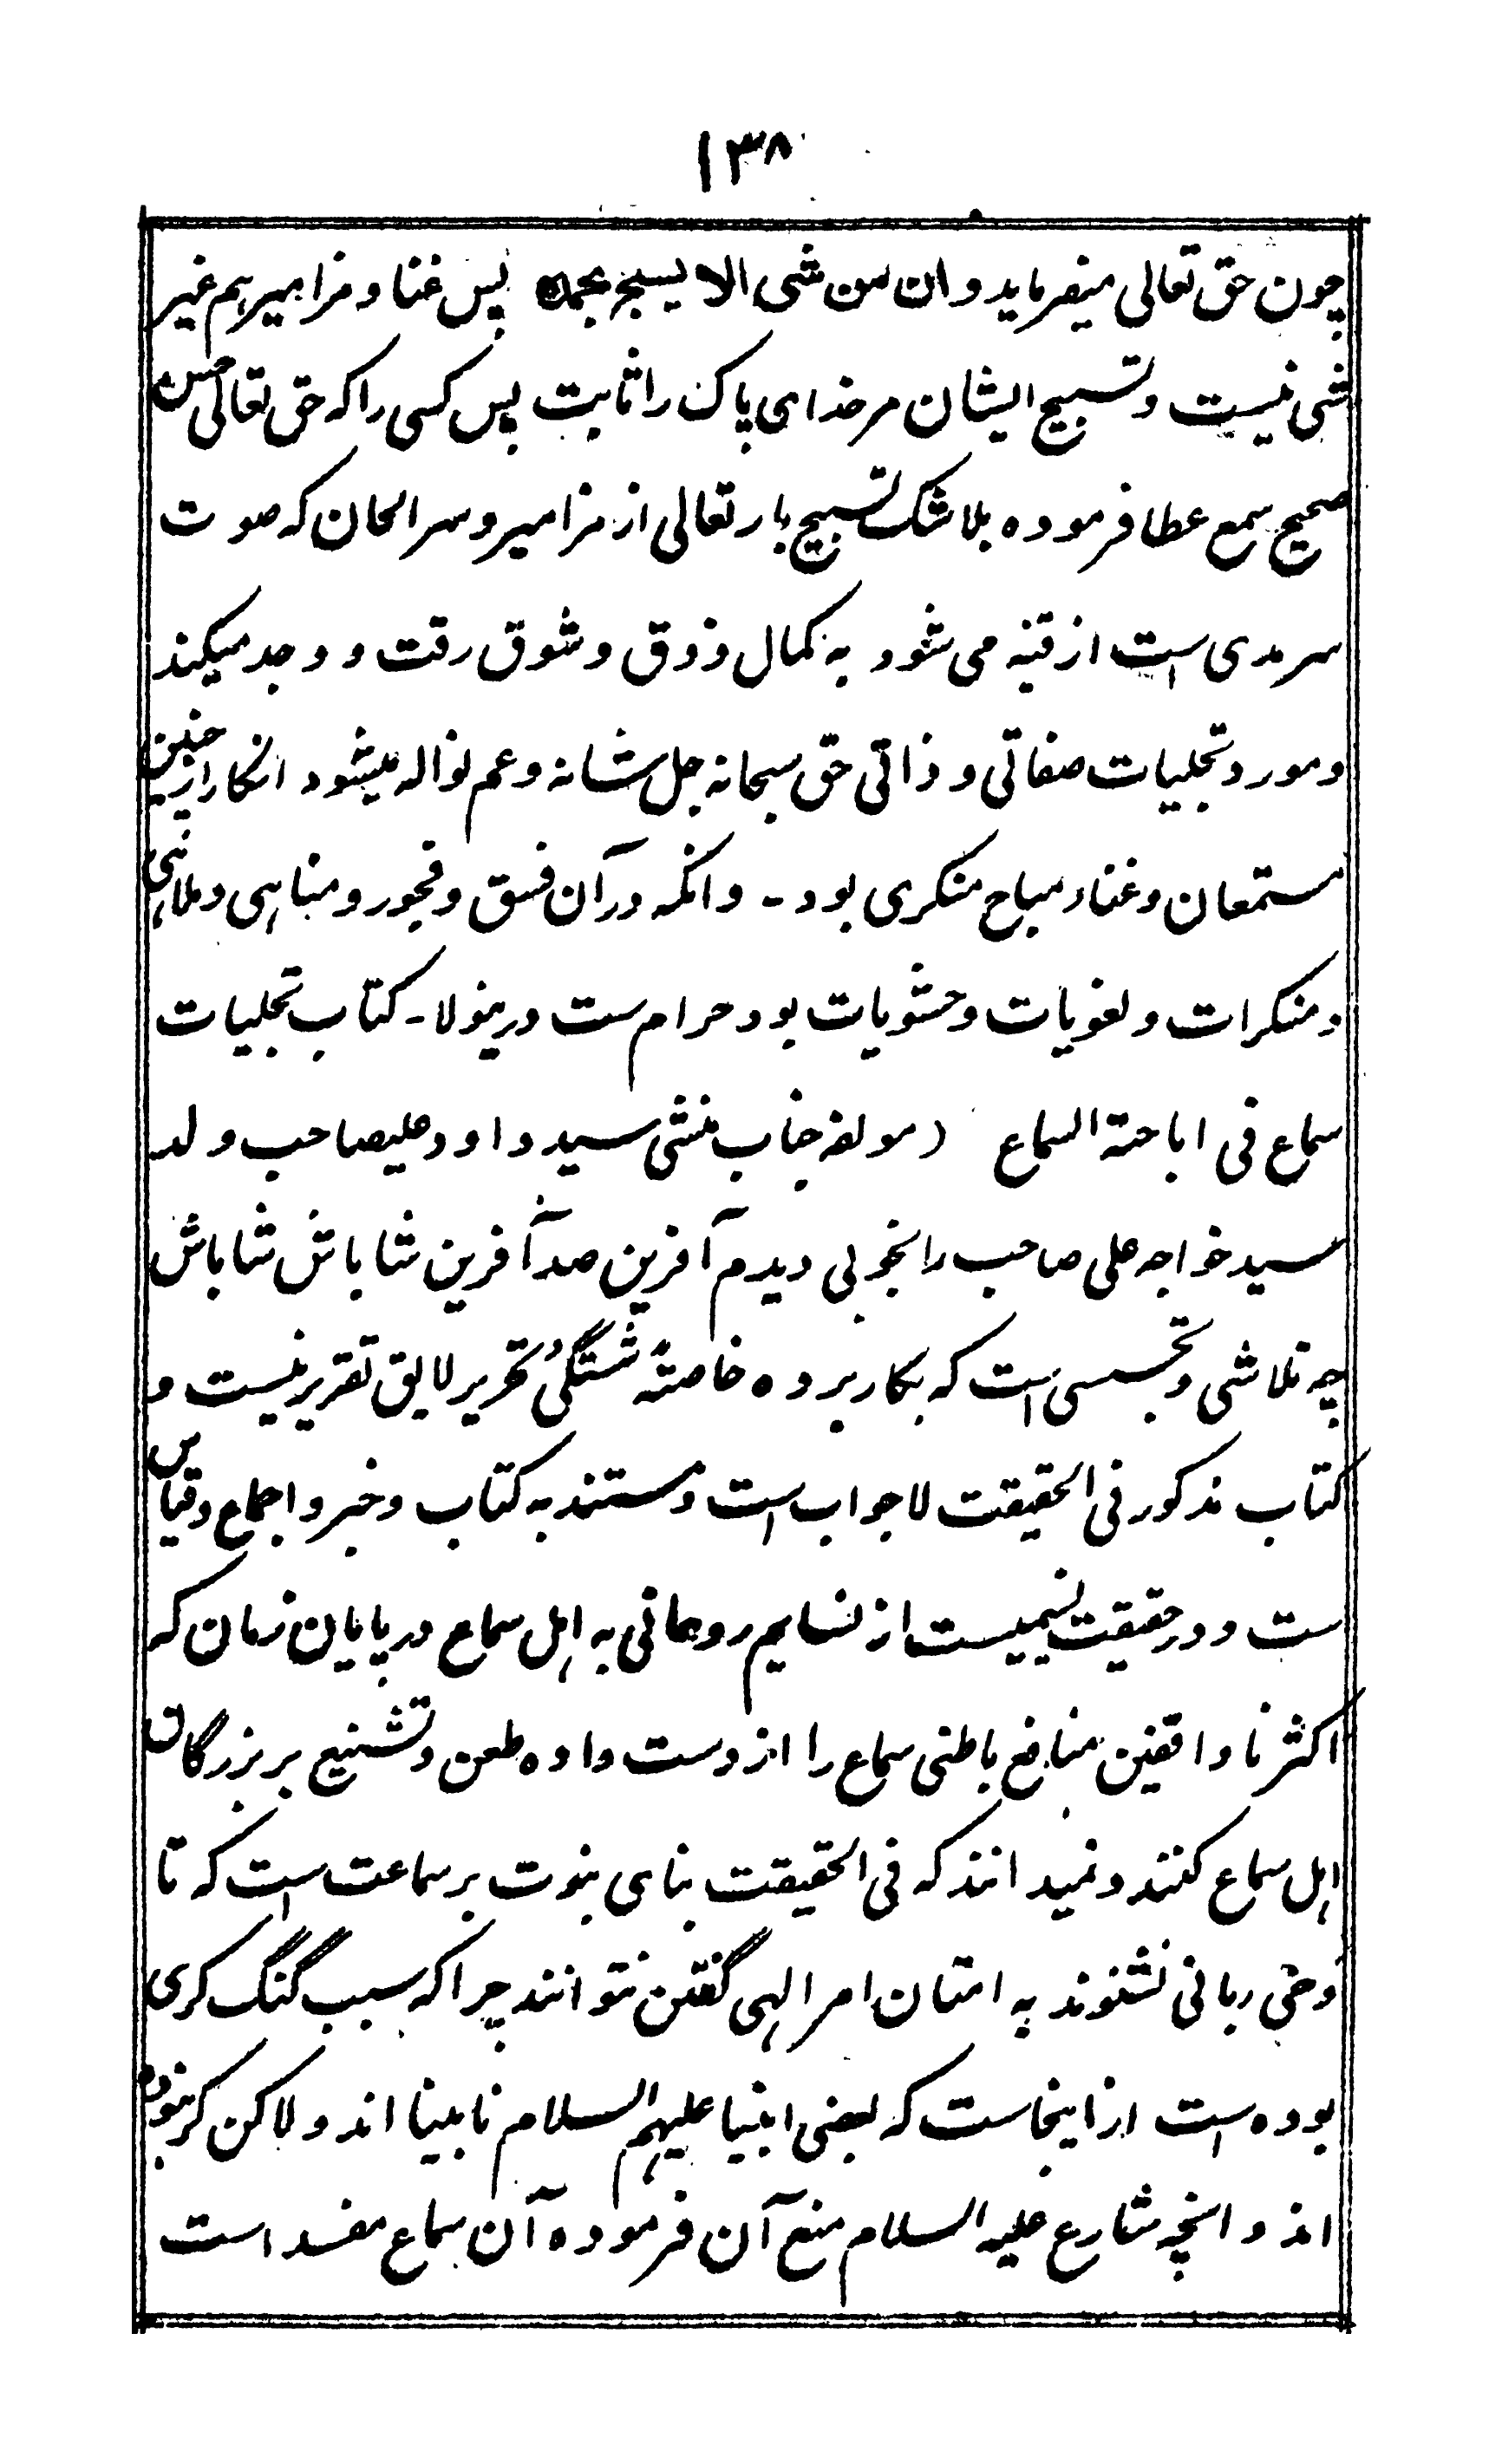 ۱۳۸
چون حق تعالی میفرماید وان من شی الا یسبح بحمده پس غنا و مزامیر هم غیر
شی نیست و تسبیح ایشان مر خدای پاک را ثابت پس کسی را که حق تعالی حسن
صحیح سمع عطا فرموده بلا شک تسبیح بار تعالی از مزامیر و سر الحان که صوت
سرمدی است از قنه می شود به کمال ذوق و شوق رقت و وجد میکند
و مورد تجلیات صفاتی و ذاتی حق سبحانه جل شانه و عم نواله میشود انکار ازین چنین
مستمعان و غناء مباح منکری بود - وانکه در آن فسق و فجور و مناهی و ملاهی
و منکرات و لغویات و حشویات بود حرام ست درینولا - کتاب تجلیات
سماع فی اباحة السماع (مولفه جناب منشی سید داود علیصاحب ولد
سید خواجه علی صاحب را بخوبی دیدم آفرین صد آفرین شاباش شاباش
چه تلاشی و تجسسی است که بکار برده خاصةً شستگیُ تحریر لایق تقریر نیست و
کتاب مذکور فی الحقیقت لاجواب است و مستند به کتاب و خبر و اجماع و قیاس
ست و در حقیقت نسیمیست از نسایم روحانی به اهل سماع در پایان زمان که
اکثر ناواقفین منافع باطنی سماع را از دست داده طعن و تشنیع بر بزرگان
اهل سماع کنند و نمیدانند که فی الحقیقت بنای بنوت بر سماعت است که تا
وحی ربانی نشنوند به امتان امر الهی گفتن نتوانند چرا که سبب گنگ کری
بوده است ازاینجاست که بعضی انبیا علیهم السلام نابینا اند و لاکن کر نبوده
اند و انچه شارع علیه السلام منع آن فرموده آن سماع مفسد است